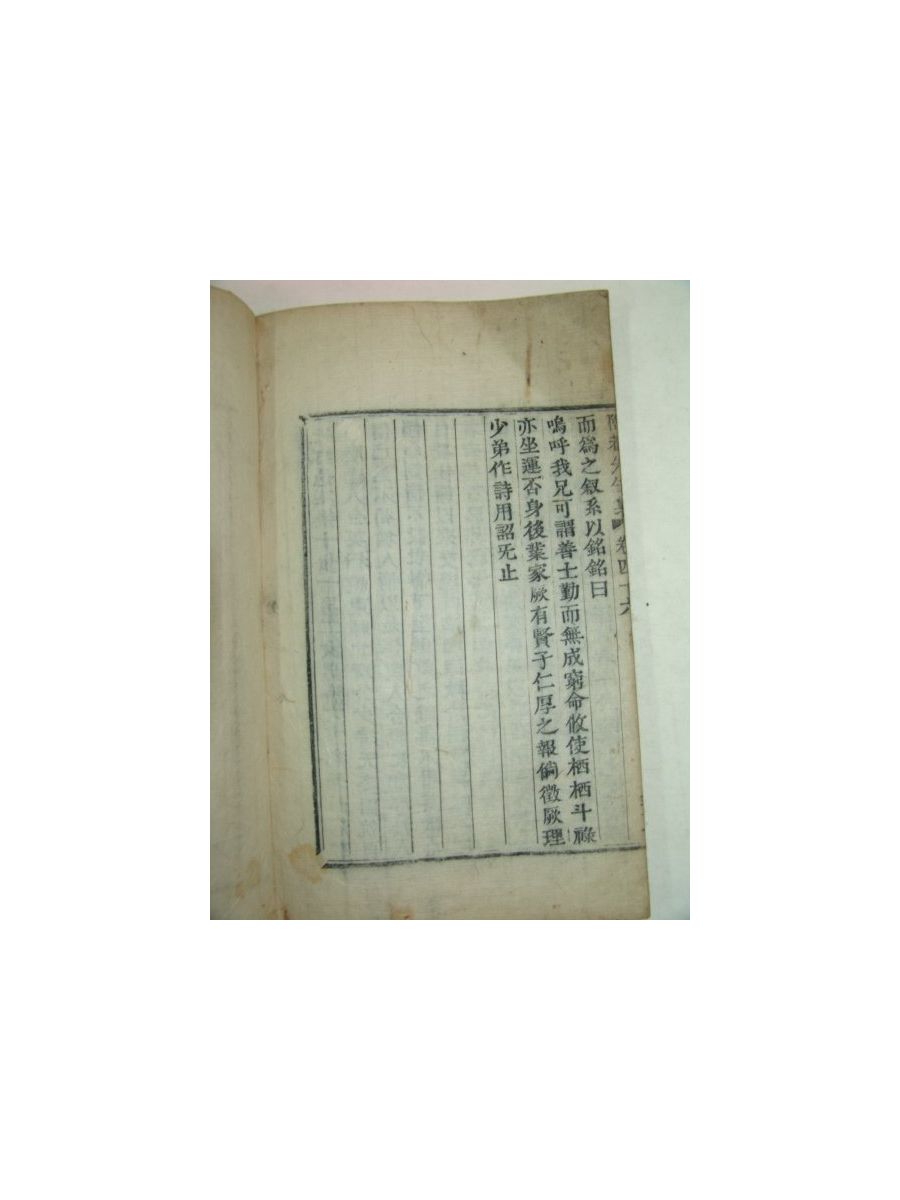 先生集 卷四十六
而爲之叙系以銘銘曰
嗚呼我兄可謂善士勤而無成窮命攸使栖栖斗祿
亦坐運否身後業家厥有賢子仁厚之報倘徵厥理
少弟作詩用詔旡止